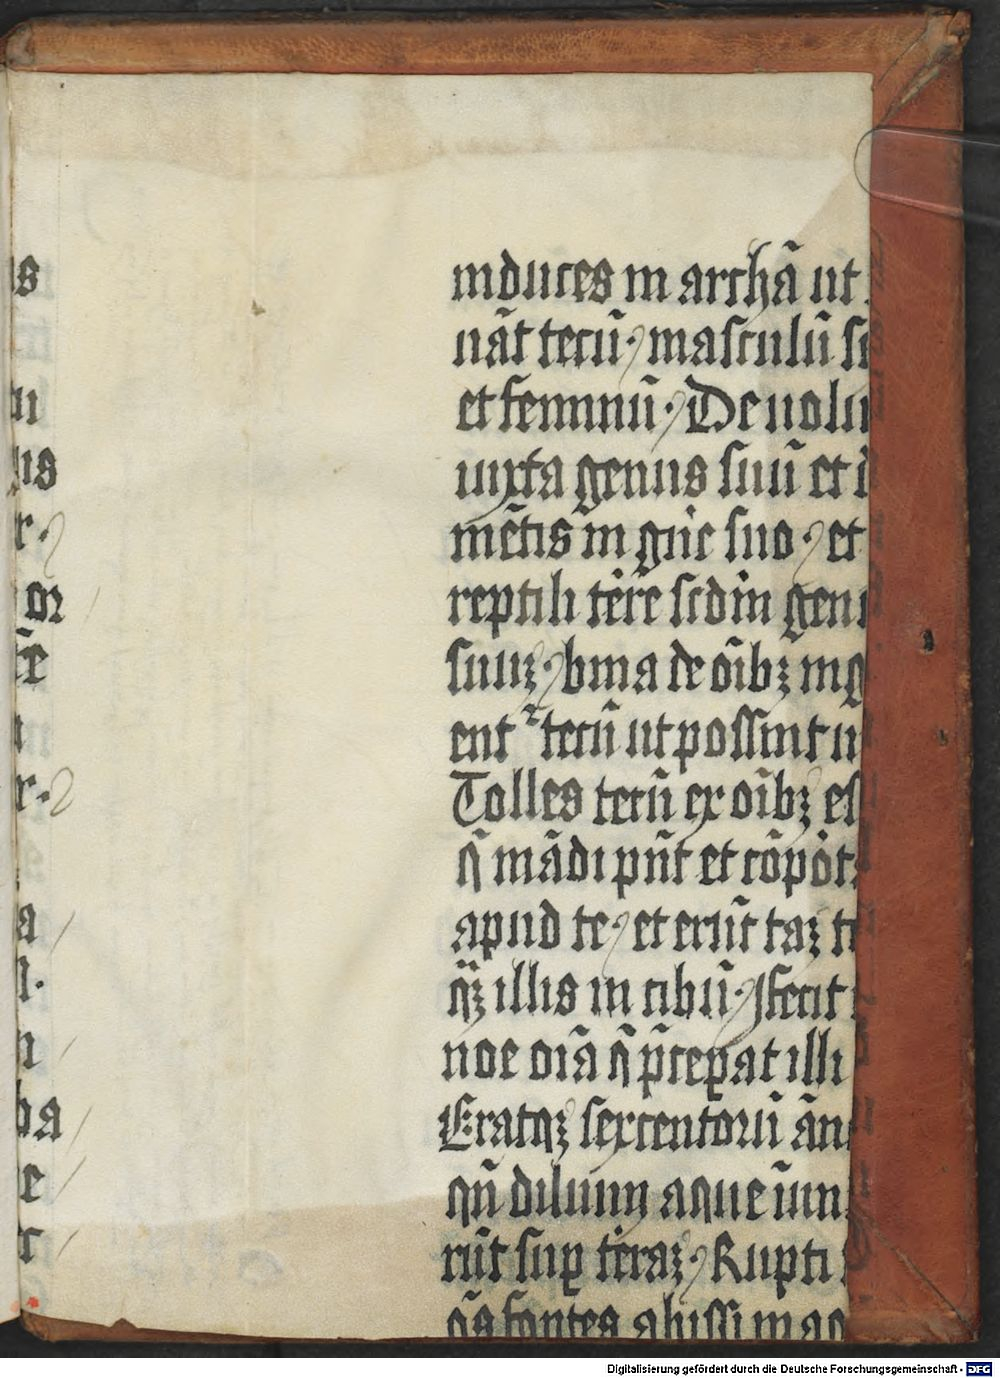 s
ui
us
r
or
te
r
a
l.
n
ba
e
r
induces in archā ut
uāt tecū masculū si
et feminū De uolu
iuxta genus suū et i
mētis in gñe suo et
reptili terre scdm genu
suuʒ bina de oībʒ ing
ent tecū ut possint u
Tolles tecū ex oībʒ es
q̄ mādi pnt et cōpōt
apud te et erūt taʒ ti
qʒ illis in cibū fecit
noe oīa q̄ p̄cepat illi
Eratqʒ sexcentorū ān
qn̄ diluuij aque iun
rūt sup terraʒ Rupti
oēs fontes abissi mag
Digitalisierung gefördert durch die Deutsche Forschungsgemeinschaft - DFG